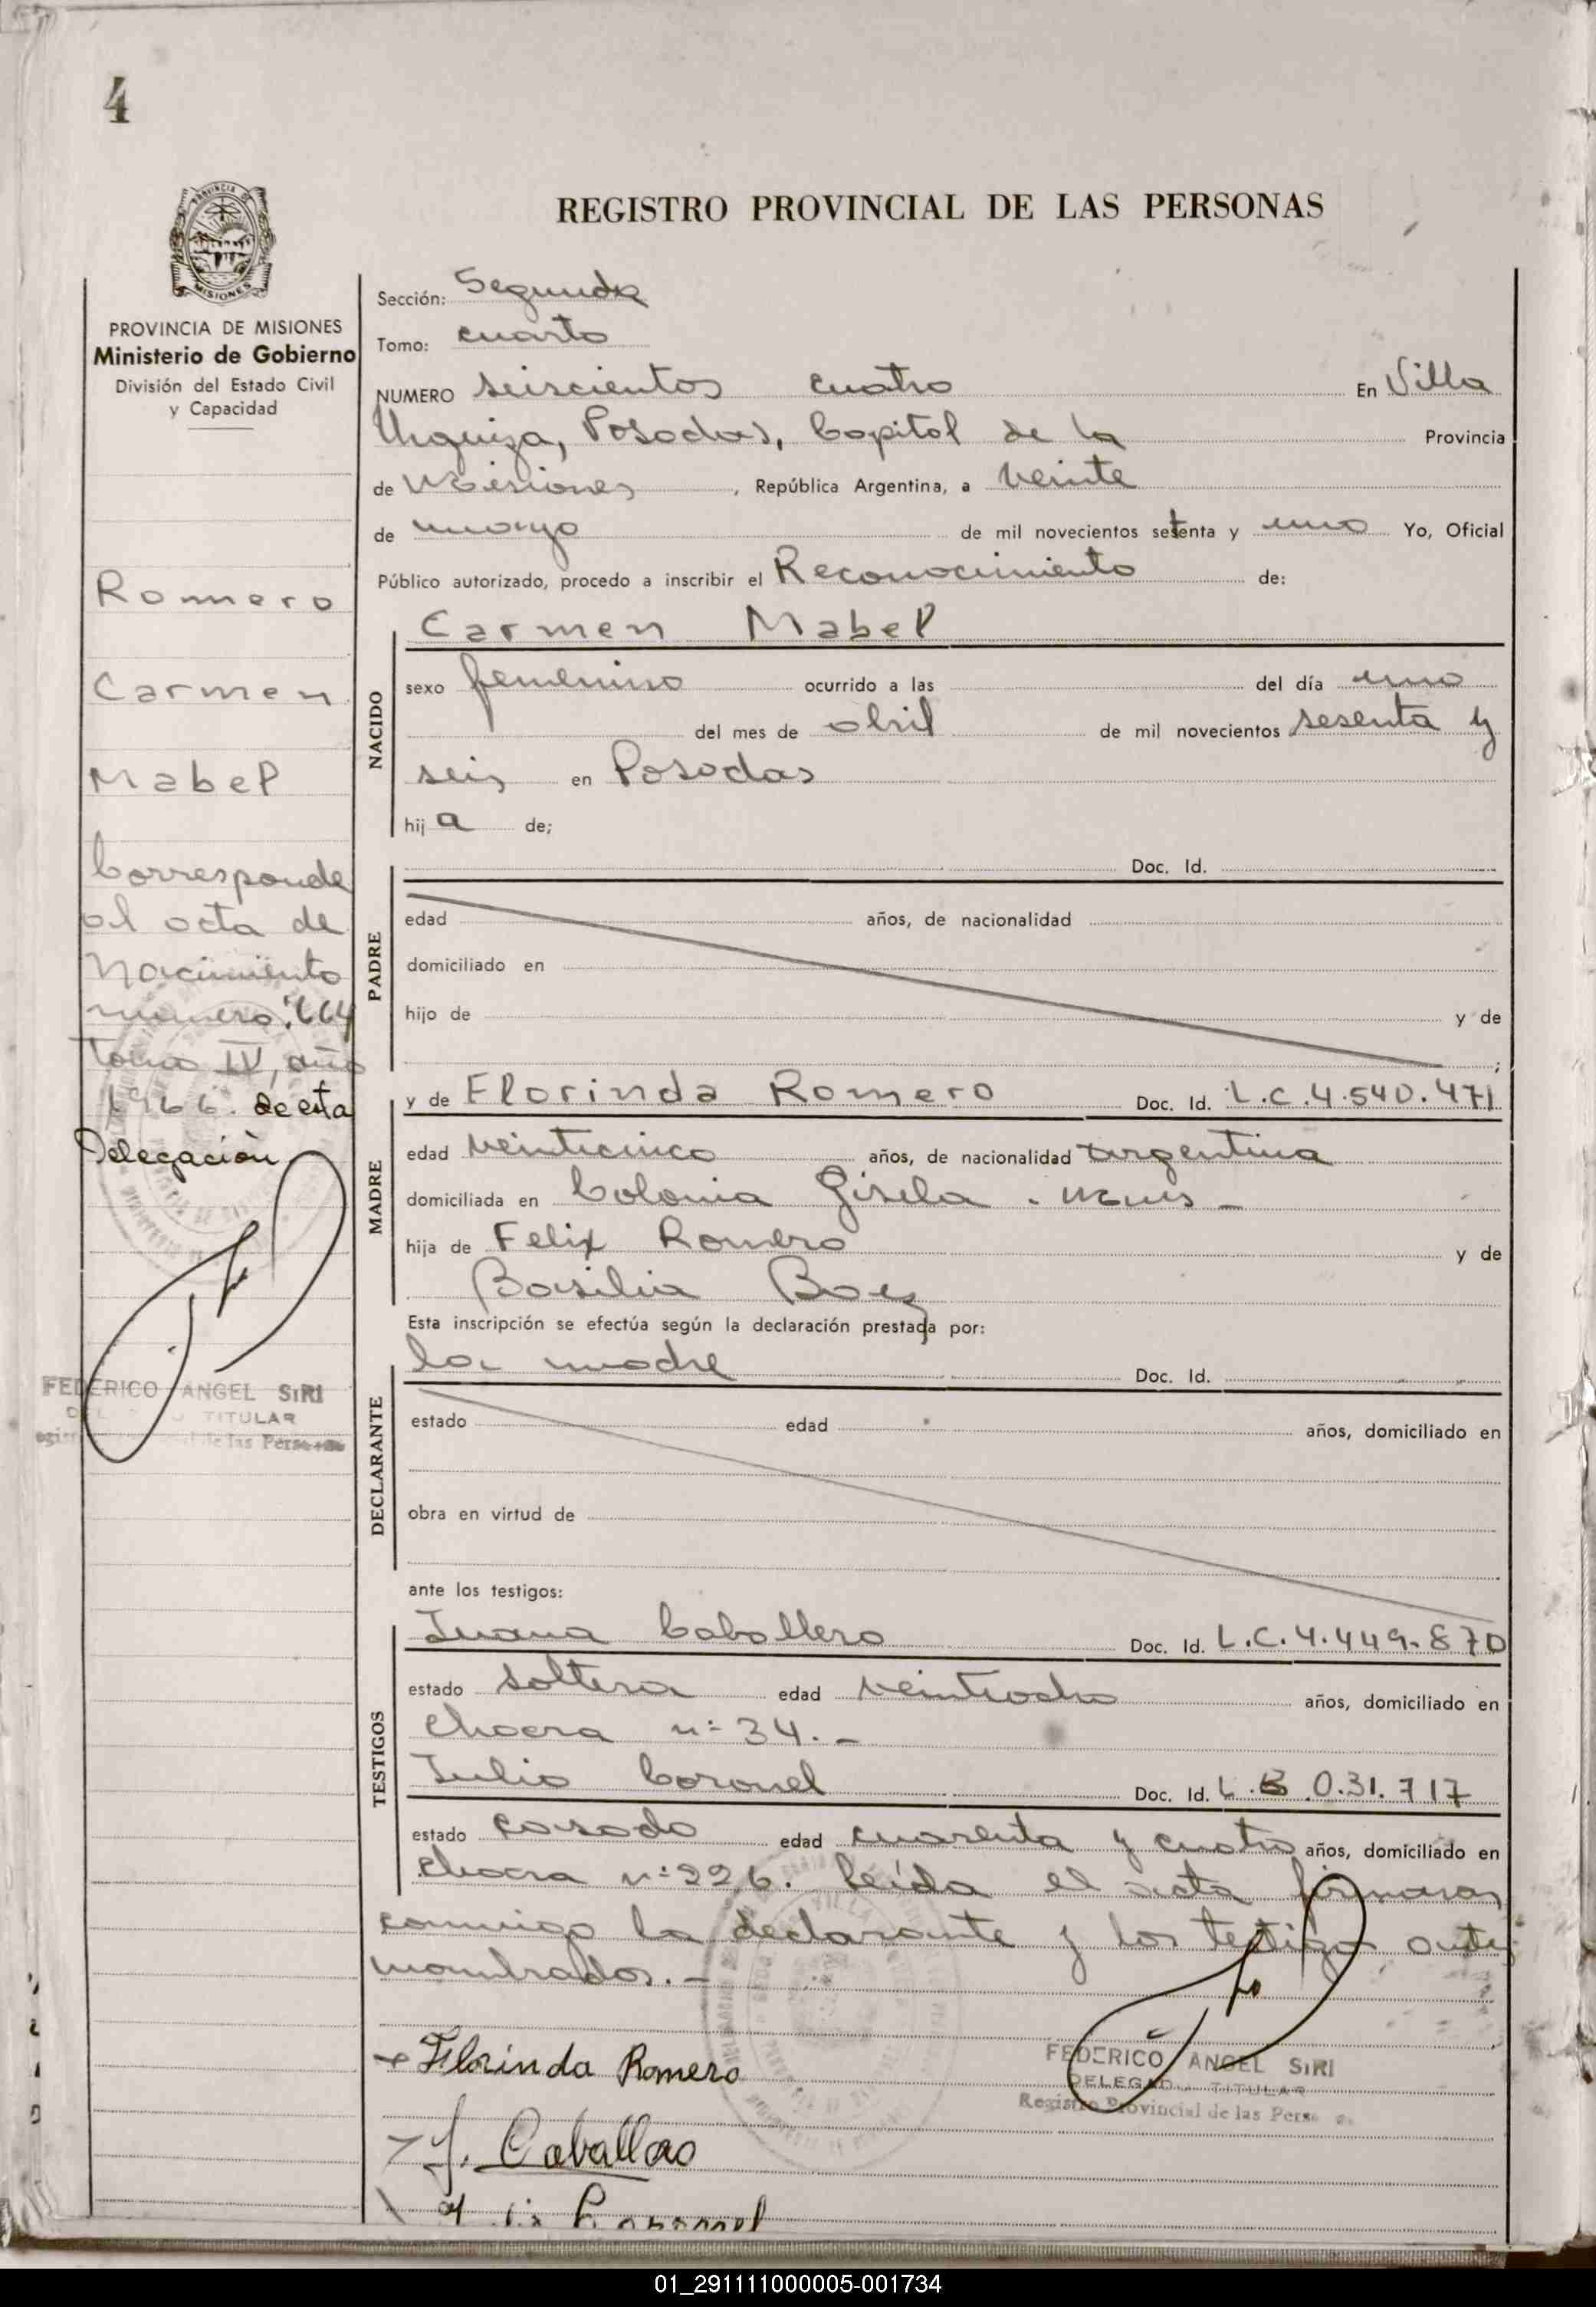 4
REGISTRO PROVINCIAL DE LAS PERSONAS
PROVINCIA
MISIONES
PROVINCIA DE MISIONES
Ministerio de Gobierno
División del Estado Civil
y Capacidad
Romero
Carmen
Mabel
Corresponde
al acta de
Nacimiento
numero: 664
Tomo IV, año
1966. de esta
Delegación
FEDERICO ANGEL SIRI
TITULAR
de las Personas
Sección: Segunda
Tomo: cuarto
NUMERO seiscientos cuatro En Villa
Urquiza, Posadas, Capital de la Provincia
de Misiones, República Argentina, a veinte
de mayo de mil novecientos setenta y uno Yo, Oficial
Público autorizado, procedo a inscribir el Reconocimiento de:
NACIDO
Carmen Mabel
sexo femenino ocurrido a las del día uno
del mes de abril de mil novecientos sesenta y
seis en Posadas
hija de;
PADRE
Doc. Id.
edad años, de nacionalidad
domiciliado en
hijo de y de
;
MADRE
y de Florinda Romero Doc. Id. L.C. 4.540.471
edad veinticinco años, de nacionalidad argentina
domiciliada en Colonia Gisela . Mnes _
hija de Felix Romero y de
Basilia Baez
Esta inscripción se efectúa según la declaración prestada por:
DECLARANTE
la madre Doc. Id.
estado edad años, domiciliado en
obra en virtud de
ante los testigos:
TESTIGOS
Juana Caballero Doc. Id. L.C. 4.449.870
estado soltera edad veintiocho años, domiciliado en
chacra nº 34. _
Julio Coronel Doc. Id. L. 0.31.717
estado casado edad cuarenta y cuatro años, domiciliado en
chacra nº 226. Leída el acta firmaran
conmigo la declarante y los testigos ante
nombrados. _
Florinda Romero
FEDERICO ANGEL SIRI
DELEGADO TITULAR
Registro Provincial de las Pers
J. Caballero
Coronel
01_291111000005-001734